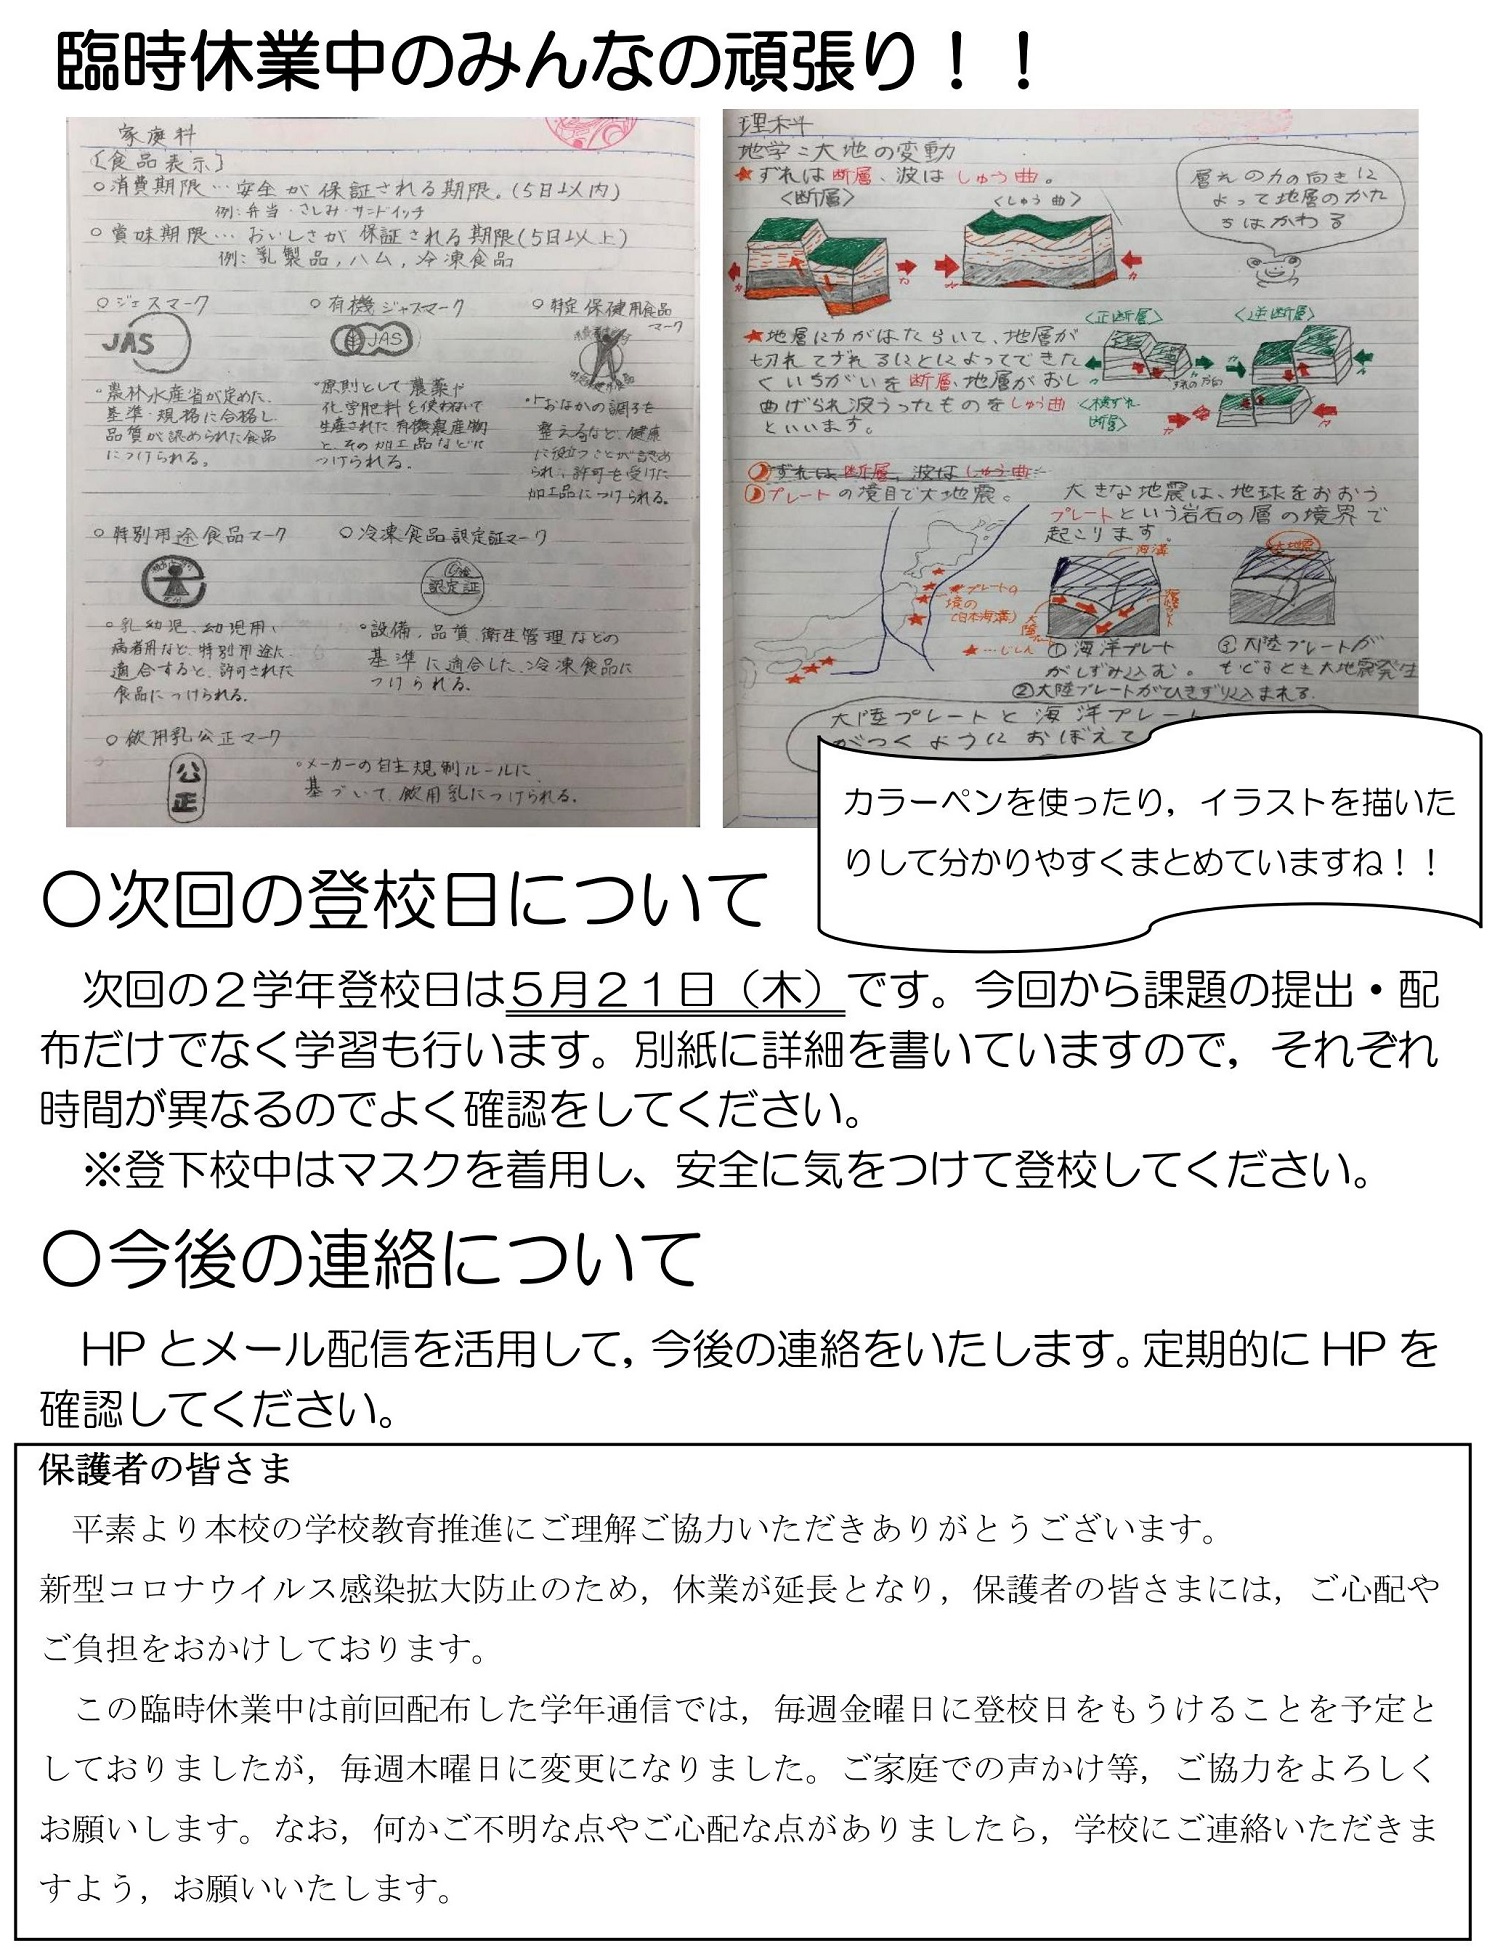 臨時休業中のみんなの頑張り！！
家庭科
〔食品表示〕
○消費期限…安全が保証される期限。(5日以内)
例:弁当・さしみ・サンドイッチ
○賞味期限…おいしさが保証される期限(5日以上)
例:乳製品,ハム,冷凍食品
○ジャスマーク
JAS
・農林水産省が定めた、
基準・規格に合格し
品質が認められた食品
につけられる。
○有機ジャスマーク
JAS
・原則として農薬や
化学肥料を使わないで
生産された有機農産物
と、その加工品などに
つけられる。
○特定保健用食品
マーク
・おなかの調子を
整えるなど、健康
に役立つことが認め
られ、許可を受けた
加工品につけられる。
○特別用途食品マーク
・乳幼児、幼児用、
病者用など、特別用途に
適合すると、許可された
食品につけられる。
○冷凍食品認定証マーク
認定証
・設備、品質、衛生管理などの
基準に適合した、冷凍食品に
つけられる。
○飲用乳公正マーク
公正
・メーカーの自主規制ルールに
基づいて、飲用乳につけられる。
理科
地学:大地の変動
★ずれは断層、波はしゅう曲。
<断層>
<しゅう曲>
力
力
力
力
層れの力の向きに
よって地層のかた
ちはかわる
★地層に力がはたらいて、地層が
切れてずれることによってできた
くいちがいを断層、地層がおし
曲げられ波うったものをしゅう曲
といいます。
<正断層>
<逆断層>
<横ずれ
断層>
ずれは断層、波はしゅう曲
プレートの境目で大地震。
大きな地震は、地球をおおう
プレートという岩石の層の境界で
起こります。
★プレートの
境の
(日本海溝)
★…じしん
海溝
大地震
①海洋プレート
がしずみ込む。
②大陸プレートがひきずり込まれる.
大陸プレートが
もどるとき大地震発生
大陸プレートと海洋プレート
がつくようにおぼえて
カラーペンを使ったり，イラストを描いた
りして分かりやすくまとめていますね！！
〇次回の登校日について
次回の２学年登校日は５月２１日（木）です。今回から課題の提出・配
布だけでなく学習も行います。別紙に詳細を書いていますので，それぞれ
時間が異なるのでよく確認をしてください。
※登下校中はマスクを着用し、安全に気をつけて登校してください。
〇今後の連絡について
HP とメール配信を活用して，今後の連絡をいたします。定期的に HP を
確認してください。
保護者の皆さま
平素より本校の学校教育推進にご理解ご協力いただきありがとうございます。
新型コロナウイルス感染拡大防止のため，休業が延長となり，保護者の皆さまには，ご心配や
ご負担をおかけしております。
この臨時休業中は前回配布した学年通信では，毎週金曜日に登校日をもうけることを予定と
しておりましたが，毎週木曜日に変更になりました。ご家庭での声かけ等，ご協力をよろしく
お願いします。なお，何かご不明な点やご心配な点がありましたら，学校にご連絡いただきま
すよう，お願いいたします。